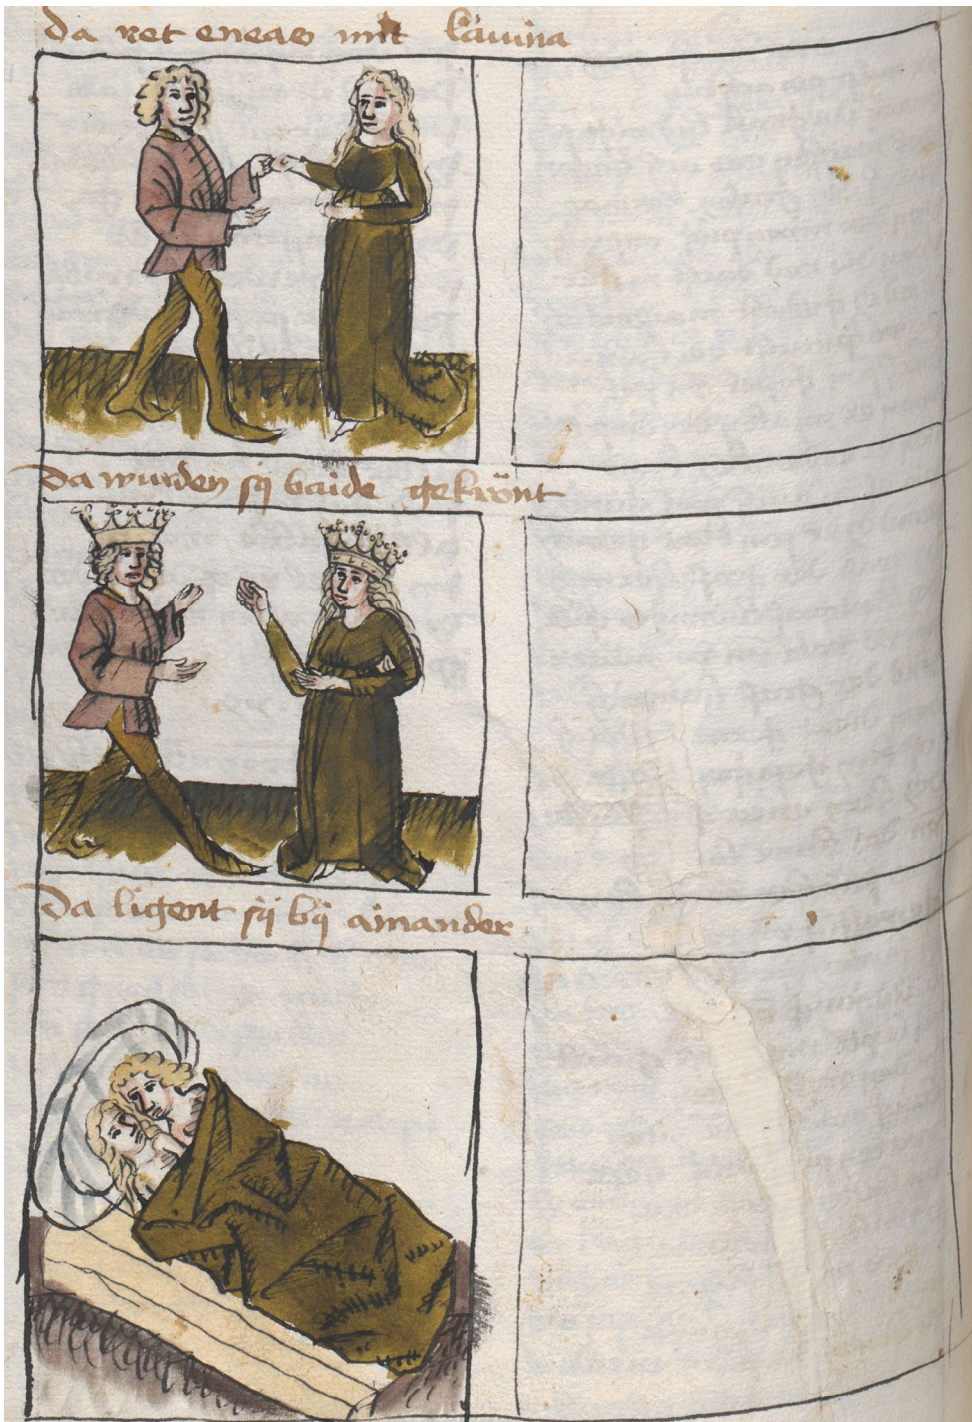 da ret eneas mit lauina
da wurden sÿ baide gekrönt
da ligent sÿ bÿ ainander